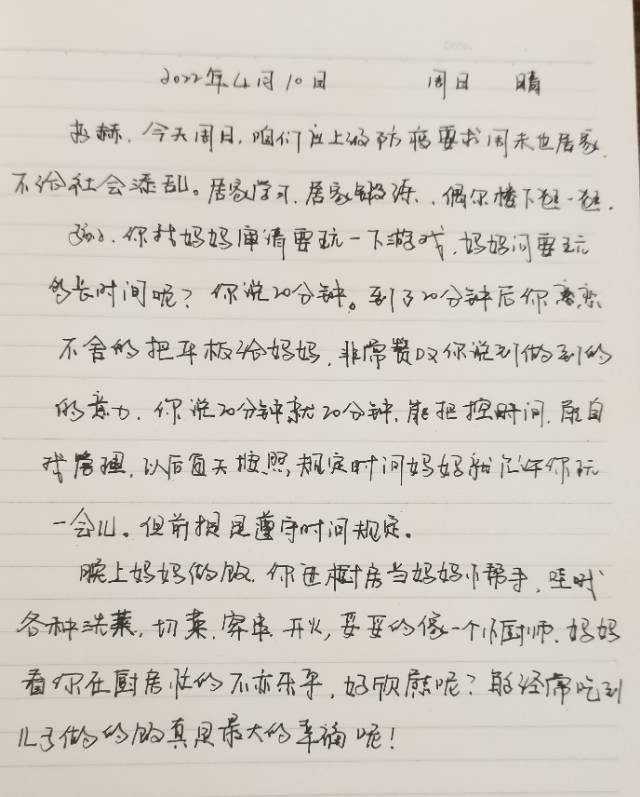 2022年4月10日 周日 晴
赫,今天周日,咱们应上级防疫要求周末也居家,
不给社会添乱。居家学习、居家锻炼,偶尔楼下逛一逛,
你找妈妈申请要玩一下游戏,妈妈问要玩
多长时间呢?你说20分钟。到了20分钟后你恋恋
不舍的把平板给妈妈,非常赞叹你说到做到的
的意力,你说20分钟就20分钟,能把握时间,能自
我管理,以后每天按照规定时间妈妈就允许你玩
一会儿。但前提是遵守时间规定。
晚上妈妈做饭,你进厨房当妈妈小帮手,哇哦
各种洗菜,切菜,穿串,开火,妥妥的像一个小厨师,妈妈
看你在厨房忙的不亦乐乎,好欣慰呢?能经常吃到
儿子做的的饭真是最大的幸福呢!